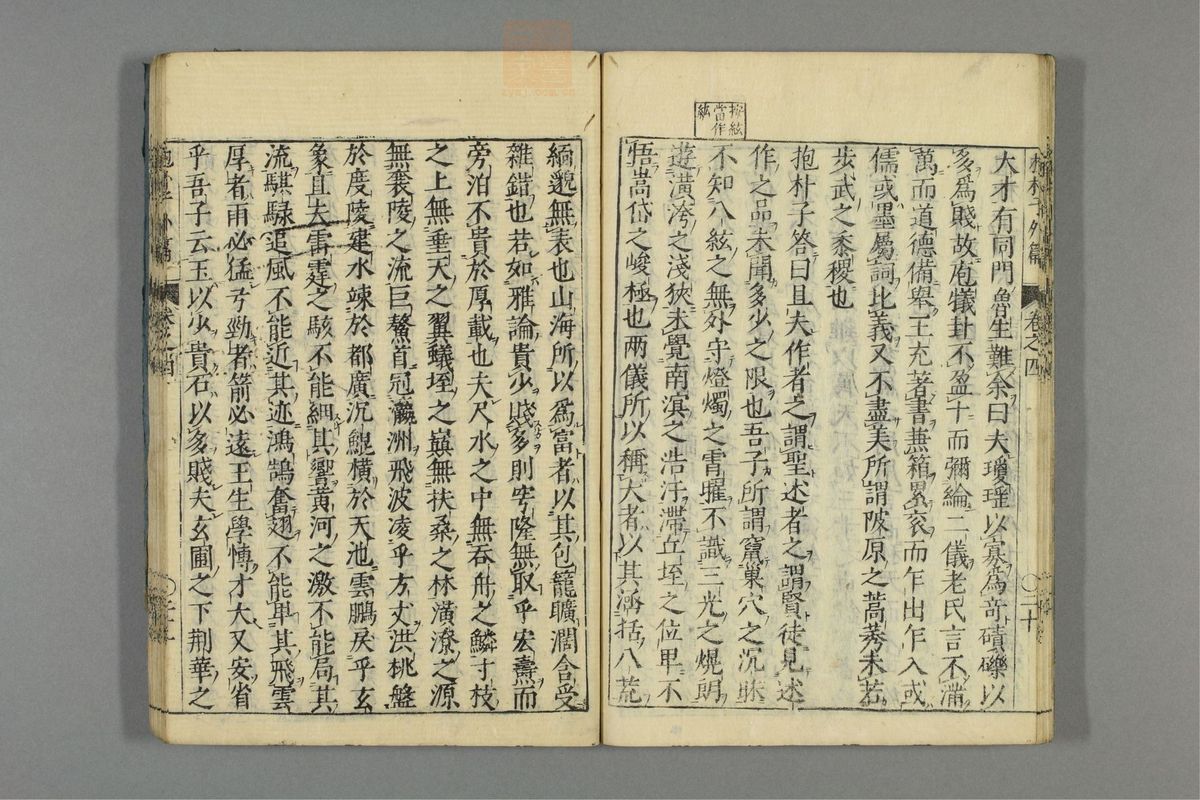 抱朴子外篇 卷之四 〇二十
大才有同門魯生難余曰夫瓊瑤以寡爲奇磧礫以
多爲賤故庖犧卦不盈十而彌綸二儀老氏言不滿
萬而道德備舉王充著書兼箱累袠而乍出乍入或
儒或墨屬詞比義又不盡美所謂陂原之蒿莠未若
步武之黍稷也
抱朴子答曰且夫作者之謂聖述者之謂賢徒見述
作之品未聞多少之限也吾子所謂竄巢穴之沉昧
不知八紘之無外守燈燭之霄曜不識三光之熀朗
遊潢洿之淺狹未覺南溟之浩汗滯丘垤之位卑不
悟嵩岱之峻極也兩儀所以稱大者以其涵括八荒
當作
紘
緬邈無表也山海所以爲富者以其包籠曠濶含受
雜錯也若如雅論貴少賤多則穹隆無取乎宏燾而
旁泊不貴於厚載也夫尺水之中無吞舟之鱗寸枝
之上無垂天之翼蟻垤之巔無扶桑之林潢潦之源
無襄陵之流巨鰲首冠瀛洲飛波凌乎方丈洪桃盤
於度陵建水竦於都廣沉鯤橫於天池雲鵬戾乎玄
象且夫雷霆之駭不能細其響黃河之激不能局其
流騏騄追風不能近其迹鴻鵠奮翅不能卑其飛雲
厚者雨必猛弓勁者箭必遠王生學博才大又安省
乎吾子云玉以少貴石以多賤夫玄圃之下荊華之